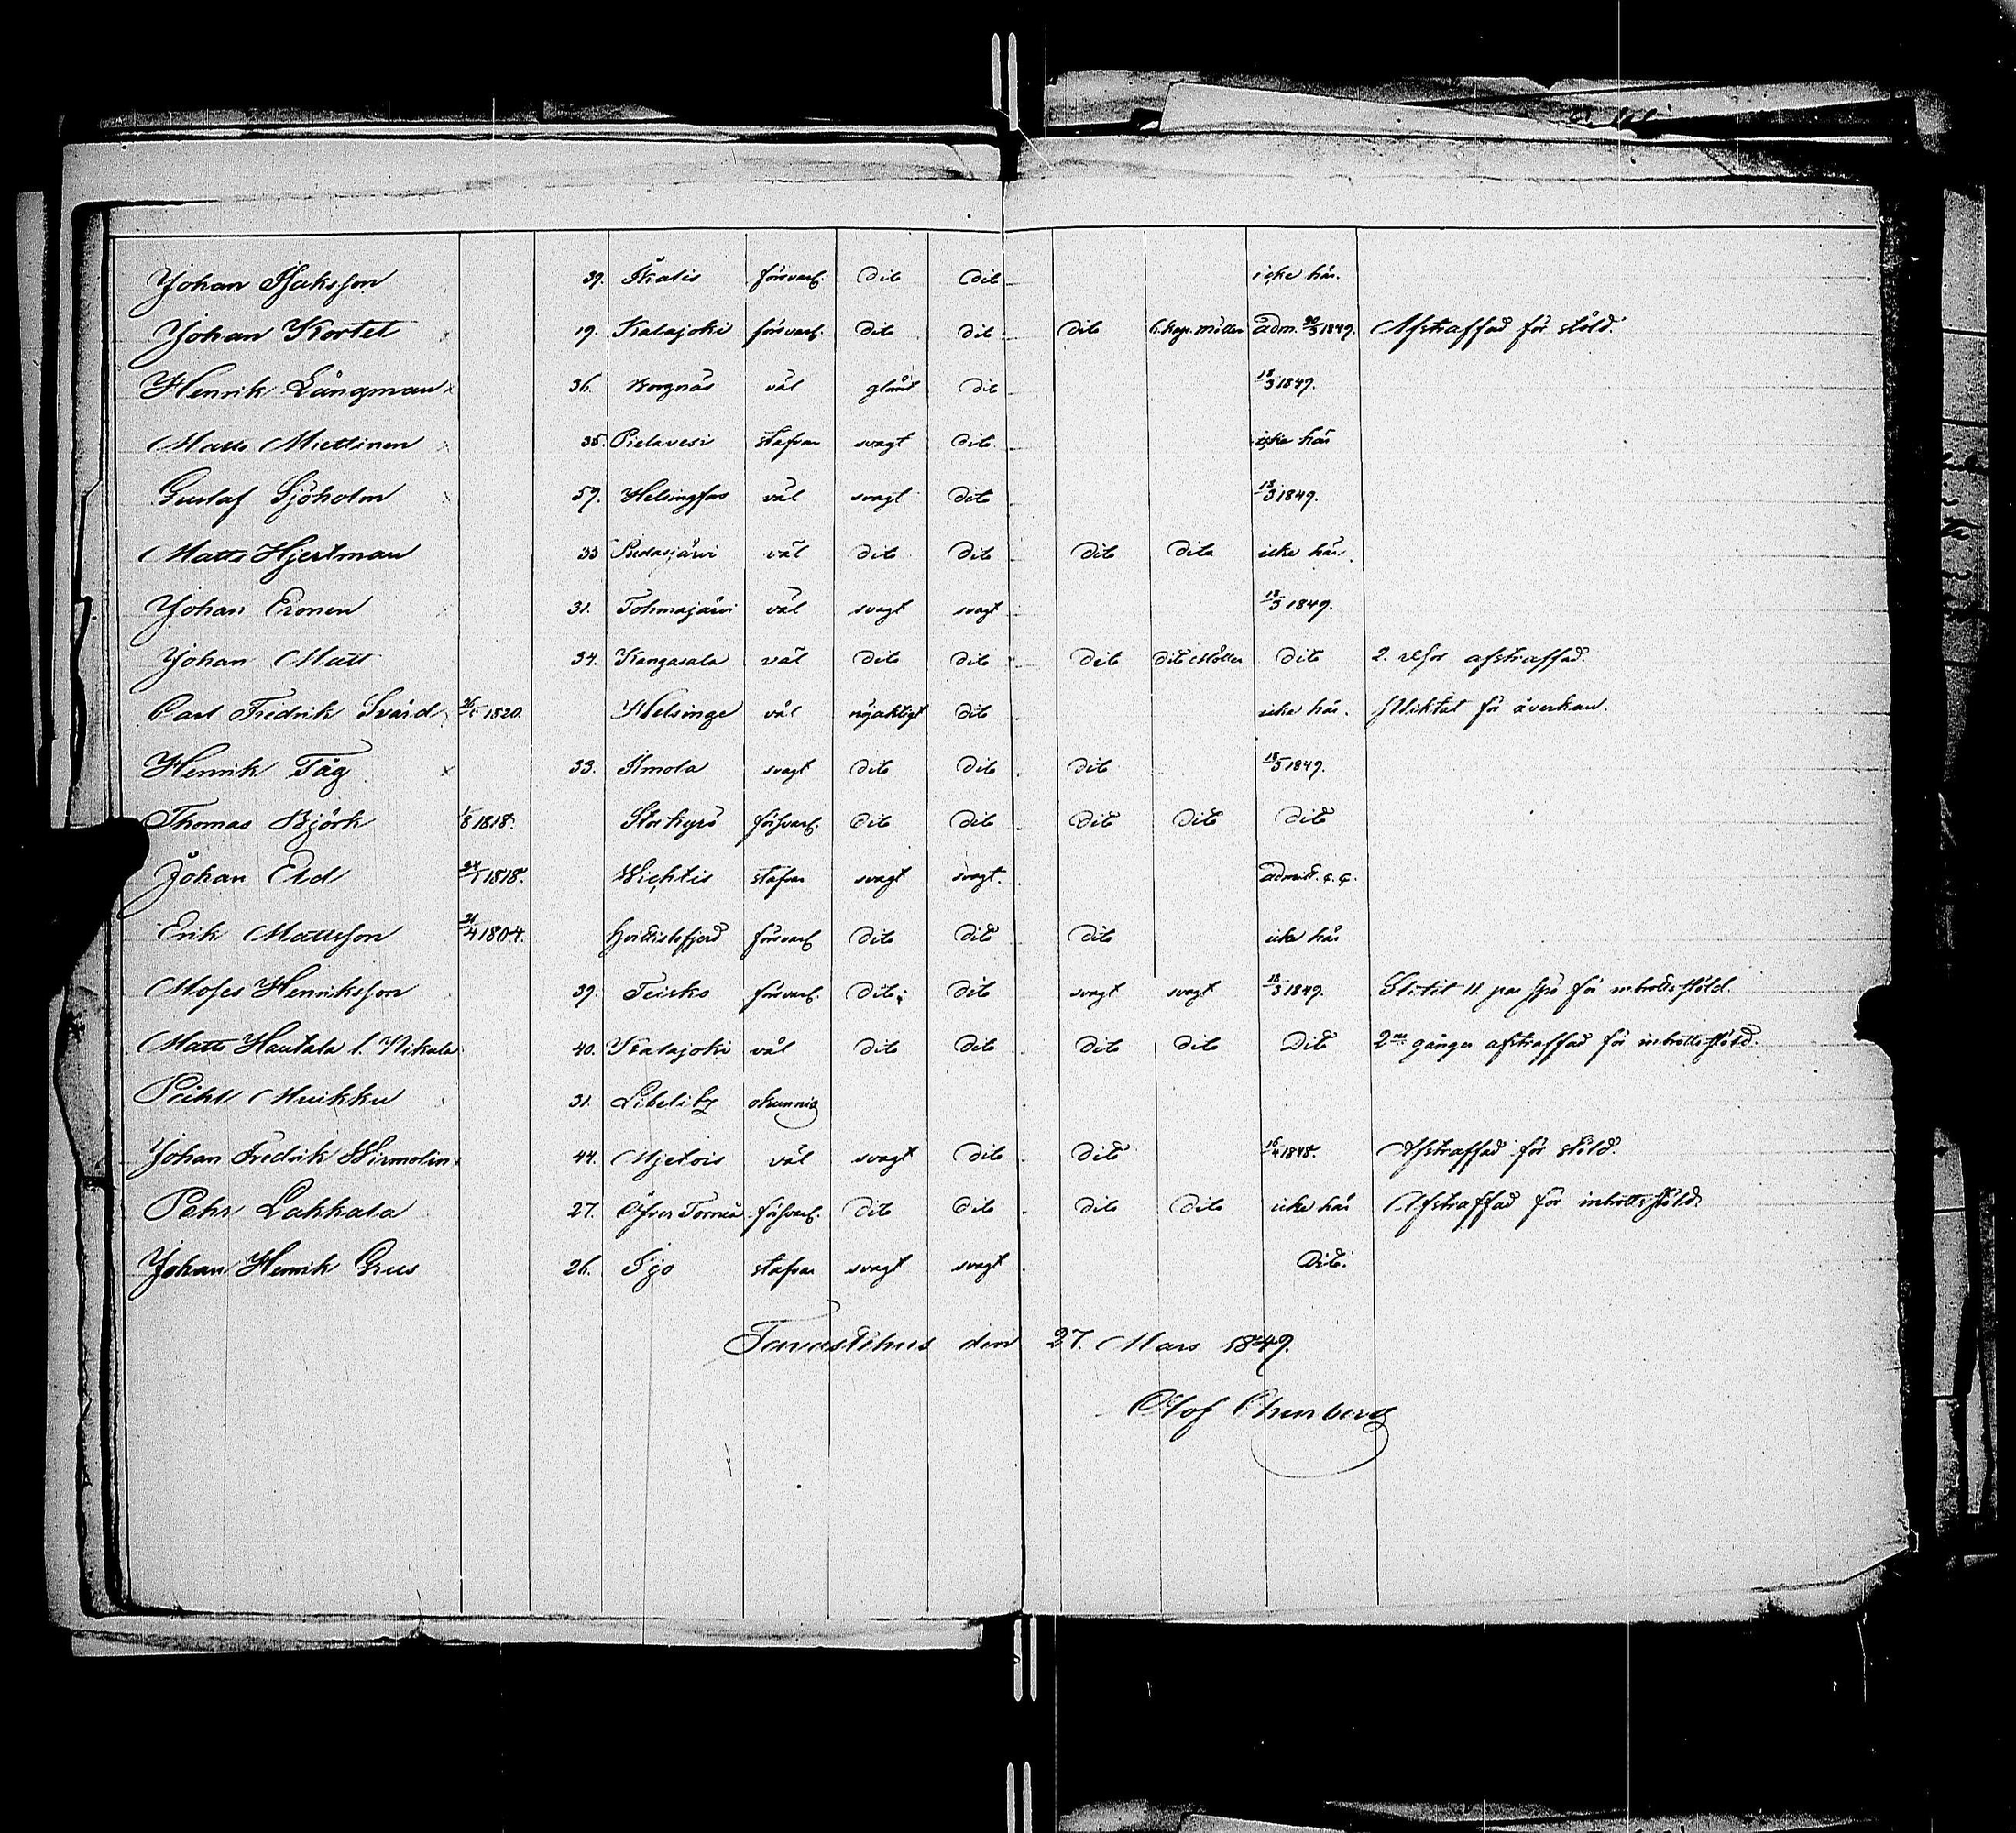 Johan Isaksson 39. Ikalis försvarl. dito dito icke här.
Johan Kortet 19. Kalajoki försvarl. dito dito dito adm. 20/3 1849. Afstraffad för stöld.
Henrik Långman x 36. Borgnäs väl dito 18/3 1849.
Matts Miettinen 35. Pielavesi stafvar svagt dito icke här
Gustaf Sjöholm 59. Helsingfors väl svagt dito 18/3 1849.
Matts Hjertman 33 Pudasjärvi väl dito dito dito dito icke här.
Johan Eronen 31. Tohmajärvi väl svagt svagt 18/3 1849.
Johan Matt 34. Kangasala väl dito dito dito dito dito 2. resor afstraffad.
Carl Fredrik Svärd 1820. Helsinge väl nöjaktigt dito icke här. Pliktat för åverkan.
Henrik Tåg x 33. Ilmola svagt dito dito dito 18/3 1849.
Thomas Björk 1/8 1818. Storkyrö försvarl. dito dito dito dito dito
Johan Eld 24/1 1818. Wichtis stafvar svagt svagt.
Erik Mattsson 21/4 1804. Hvittisbofjerd försvarl. dito dito dito icke här
Moses Henriksson 39. Teisko försvarl. dito dito svagt svagt 18/3 1849. Slitit 11 par spö för inbrotts stöld.
Matts Hautala l. Nikula 40. Kalajoki väl dito dito dito dito Dito 2ne gånger afstraffad för inbrotts stöld.
Påhl Muikku 31. Libelitz okunnig
Johan Fredrik Wirmolin 44. Mjetois väl svagt dito dito 16/4 1848. Afstraffad för stöld.
Pehr Lakkala 27. Öfver Torneå försvarl. dito dito dito dito icke här Afstraffad för inbrotts stöld.
Johan Henrik Grus 26. Ijo stafvar svagt svagt Dito.
Tavastehus den 27. Mars 1849.
Olof